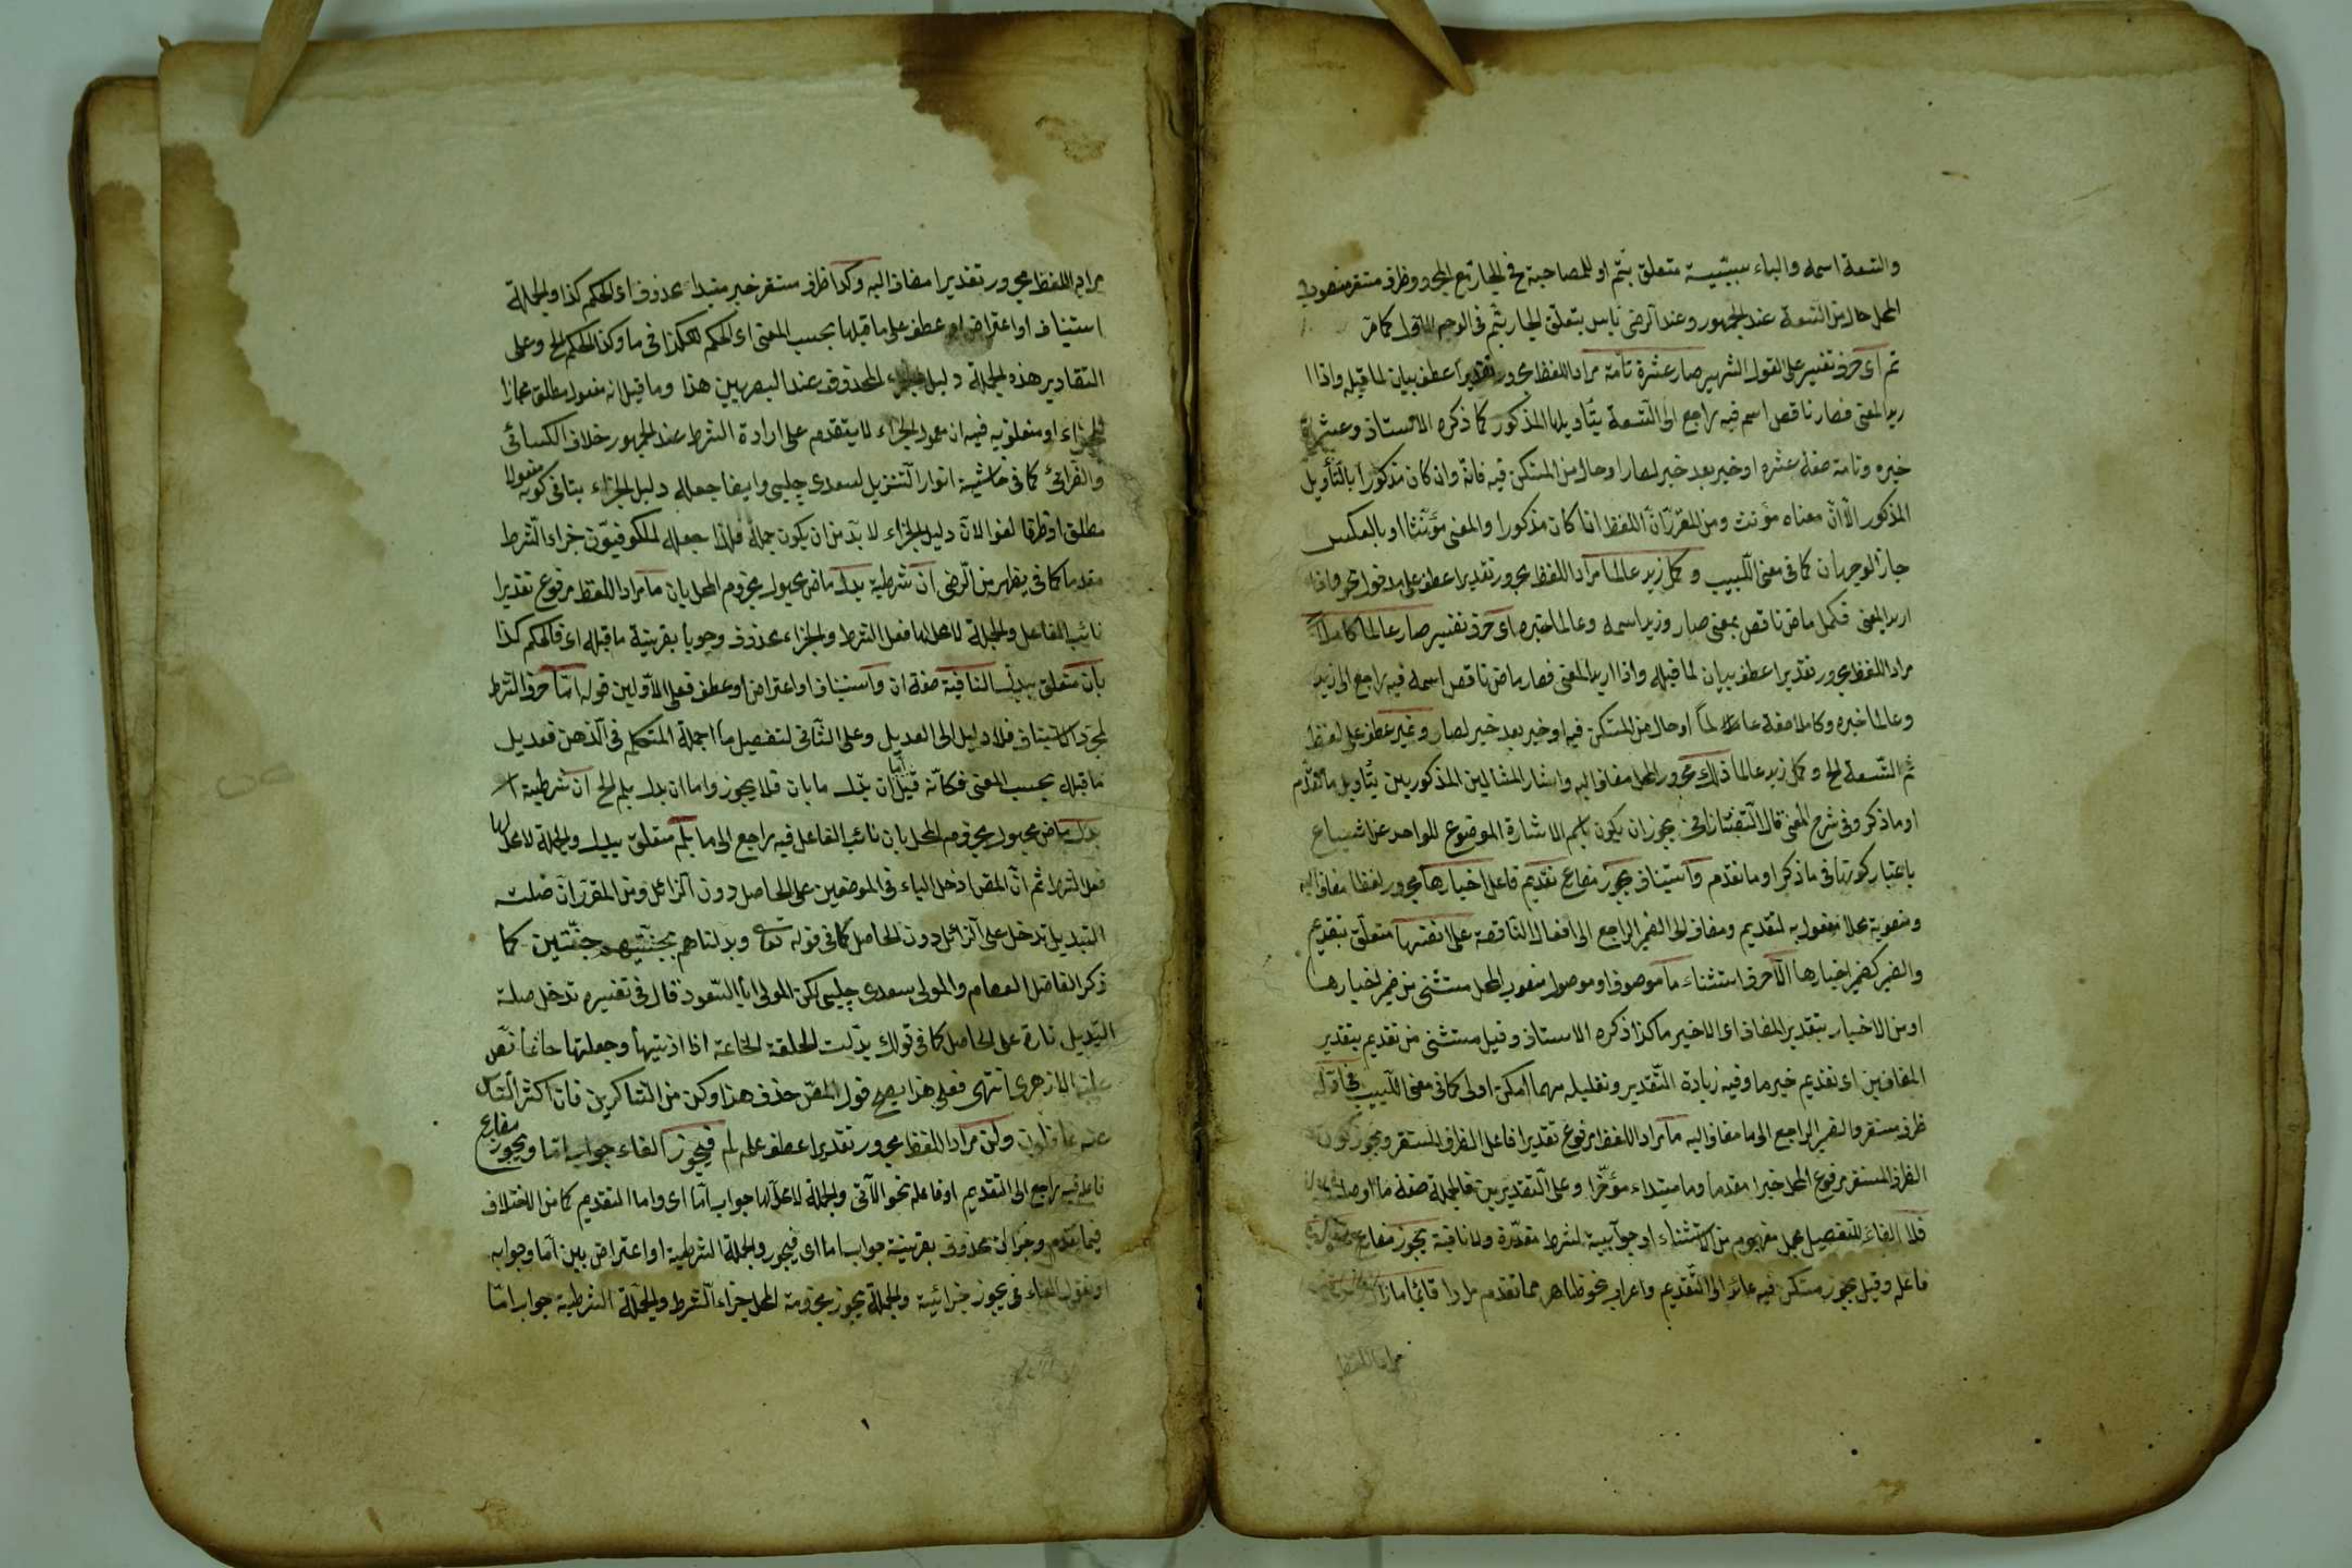 والتسعة اسمه والباء سببية متعلق بتم او للمصاحبة فح الجار مع المجرور ظرف مستقر منصوب
المحل حال من التسعة عند الجمهور وعند الرضى لا بأس بتعلق الجار بتم فى الوجه الاول كما مر
تم اى حرف تفسير على القول الشهير صار عشرة تامة مراد اللفظ مجرور تقديرا عطف بيان لما قبله واذا ا
ريد المعنى فصار ناقص اسم فيه راجع الى التسعة بتأويلها المذكور كما ذكره الاستاذ وعشرة
خبره وتامة صفة عشرة او خبر بعد خبر لصار او حال من المستكن فيه فانه وان كان مذكورا بالتأويل
المذكور الا ان معناه مؤنث ومن المقرر ان اللفظ اذا كان مذكورا والمعنى مؤنثا او بالعكس
جاز الوجهان كما فى مغنى اللبيب وكمل زيد عالما مراد اللفظ مجرور تقديرا عطف على مدخول نحو واذا
اريد المعنى فكمل ماض ناقص بمعنى صار وزيد اسمه وعالما خبره اى حرف تفسير صار عالما كاملا
مراد اللفظ مجرور تقديرا عطف بيان لما قبله واذا اريد المعنى فصار ماض ناقص اسمه فيه راجع الى زيد
وعالما خبره وكاملا صفة عالما او حال من المستكن فيه او خبر بعد خبر لصار وغير عطف على لفظ
تم التسعة الخ وكمل زيد عالما ذلك مجرور المحل مضاف اليه واشار المثالين المذكورين بتأويل ما تقدم
او ما ذكر وفى شرح المغنى قال التفتازانى يجوز ان يكون باسم الاشارة الموضوع للواحد عن اشياء
باعتبار كونها فى ما ذكر او ما تقدم واستيناف يجوز مضارع تقديم فاعل اخبارها مجرور لفظا مضاف اليه
ومنصوبة محلا مفعول به لتقديم ومضاف الى الضمير الراجع الى افعال الناقصة على انفسها متعلق بتقديم
والضمير كضمير اخبارها الا حرف استثناء ما موصوف او موصول منصوب المحل مستثنى من ضمير اخبارها
او من الاخبار بتقدير المضاف اى الا خبر ما كذا ذكره الاستاذ وقيل مستثنى من تقديم بتقدير
المضافين اى تقديم خبر ما وفيه زيادة التقدير وتقليله مهما امكن اولى كما فى مغنى اللبيب فى اوله
ظرف مستقر والضمير الراجع الى ما مضاف اليه ما مراد اللفظ مرفوع تقديرا فاعل الظرف المستقر ويجوز كون
الظرف المستقر مرفوع المحل خبرا مقدما وما مبتداء مؤخرا وعلى التقديرين فالجملة صفة ما او صلته
فلا الفاء للتفصيل مجمل مفهوم من الاستثناء او جوابية لشرط مقدرة ولا نافية يجوز مضارع
فاعله وقيل يجوز مستكن فيه عائد الى التقديم واعراب نحو ظاهر مما تقدم مرارا قائما مازال
مراد اللفظ
مراد اللفظ مجرور تقديرا مضاف اليه وكذا ظرف مستقر خبر مبتدا محذوف اى الحكم كذا والجملة
استيناف او اعتراض او عطف على ما قبلها بحسب المعنى اى الحكم هكذا فى ما وكذا الحكم الخ وعلى
التقادير هذه الجملة دليل الجزاء المحذوف عند البصريين هذا وما قيل انه مفعول مطلق مجازا
للجزاء او متعلق به فيه ان معمول الجزاء لا يتقدم على اداة الشرط عند الجمهور خلاف الكسائى
والفرائ كما فى حاشية انوار التنزيل لسعدى چلبى وايضا جعله دليل الجزاء ينافى كونه مفعولا
مطلق او ظرفا لغوا لان دليل الجزاء لا بد من ان يكون جملة فلذا جعله الكوفيون جزاء الشرط
مقدما كما فى يظهر من الرضى ان شرطية بدل ماض مجهول مجزوم المحل بان ما مراد اللفظ مرفوع تقديرا
نائب الفاعل والجملة لا محل لها فعل الشرط والجزاء محذوف وجوبا بقرينة ما قبله اى فالحكم كذا
بان متعلق ببدل النافية صفة ان واستيناف او اعتراض او عطف فعلى الاولين قوله اما حرف الشرط
لمجرد الاستيناف فلا دليل الى العديل وعلى الثانى لتفصيل ما اجمله المتكلم فى الذهن فعديل
ما قبله بحسب المعنى فكأنه قيل اما ان بدل ما بان فلا يجوز واما ان بدل بلم الخ ان شرطية
بدل ماض مجهول مجزوم المحل بان نائب الفاعل فيه راجع الى ما بلم متعلق ببدل والجملة لا محل لها
فعل الشرط ثم ان المص ادخل الباء فى الموضعين على الحاصل دون الزائل ومن المقرر ان صلت
التبديل تدخل على الزائل دون الحاصل كما فى قوله تعالى وبدلناهم بجنتيهم جنتين كما
ذكر الفاضل العصام والمولى سعدى چلبى لكن المولى ابا السعود قال فى تفسيره تدخل صلة
التبديل تارة على الحاصل كما فى قولك بدلت الحلقة الخاتمة اذا اذبتها وجعلتها خاتما نص
عليه الازهرى انتهى فعلى هذا يصح قول المص حذف هذا وكن من الشاكرين فان اكثر الناس
عنه غافلون ولن مراد اللفظ مجرور تقديرا عطف على لم فيجوز الفاء جواب اما ويجوز مضارع
فاعله فيه راجع الى التقديم او فاعله نحو الآتى والجملة لا محل لها جواب اما اى واما التقديم كما من الاختلاف
فيما تقدم وجزاء ان محذوف بقرينة جواب اما اى فيجوز والجملة الشرطية او اعتراض بين اما وجوابه
او نقول الفاء فى يجوز جزائية والجملة يجوز مجزومة المحل جزاء الشرط والجملة الشرطية جواب اما